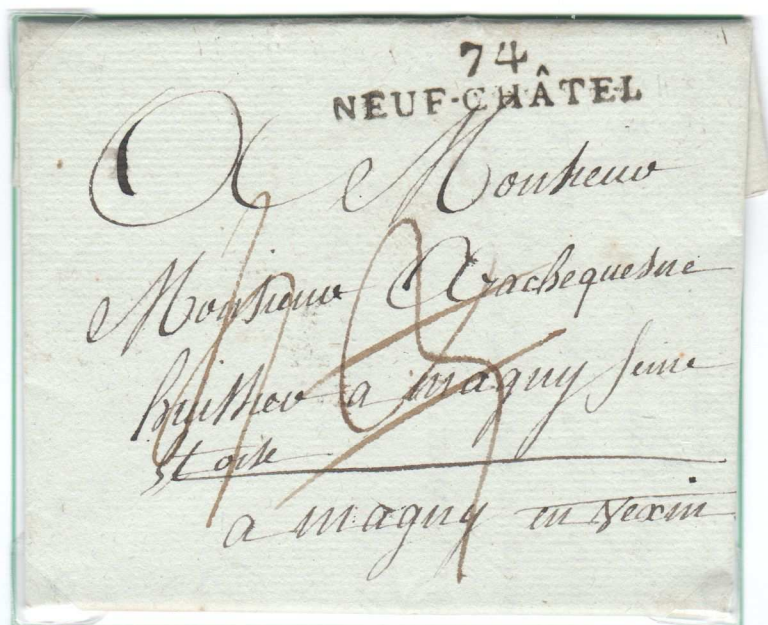 74
NEUF-CHÂTEL
A Monsieur
Monsieur Arachequesne
huissier a magny seine
et oise
a magny en vexin